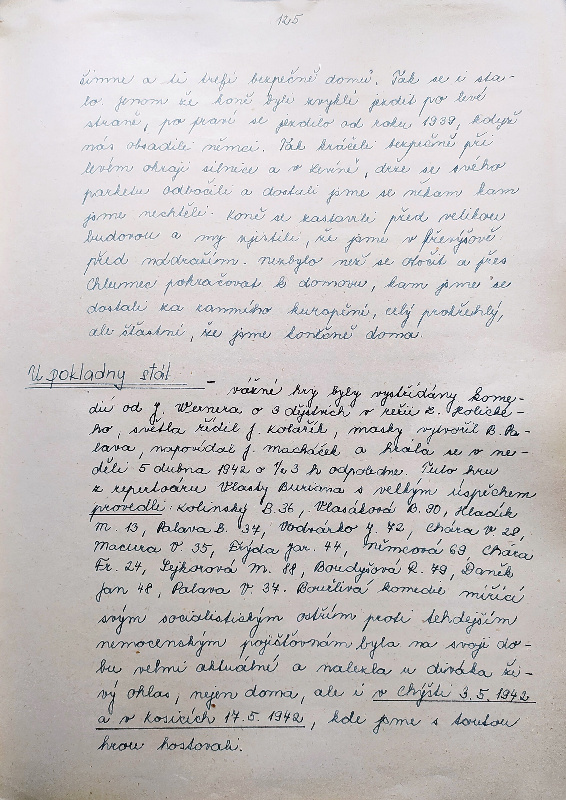 125
šímne a ti trefí bezpečně domů. Tak se i sta-
lo. Jenom že koně byli zvyklí jezdit po levé
straně, po pravé se jezdilo od roku 1939, kdyžž
nás obsadili němci. Tak kráčeli bezpečně při
levém okraji silnice a v Levíně, drže se svého
parketu odbočili a dostali jsme se někam kam
jsme nechtěli. Koně se zastavili před velikou
budovou a my zjistili, že jsme v Převýšově
před nádražím. nezbylo než se otočit a přes
Chlumec pokračovat k domovu, kam jsme se
dostali za ranního kuropění, celý prokřehlý,
ale šťastní, že jsme konečně doma.
U pokladny stál - vážné hry byly vystřídány kome-
dií od J. Wernera o 3 dějstvích v režii L. Kolínské-
ho, světla řídil J. Kolářík, masky vytvořil B. Pa-
lava, napovídal J. Macháček a hrála se v ne-
děli 5 dubna 1942 o 1/2 3 h odpoledne. Tuto hru
z repertoáru Vlasty Buriana s velkým úspěchem
provedli: Kolínský B. 36, Vlasáková B. 90, Hladík
M. 13, Palava B. 37, Vodvárko J. 72, Chára V 28,
Macura V 35, Frýda Jar. 44, Němcová 69, Chára
Fr. 24, Sejkorová M. 88, Boudyšová R. 79, Daněk
Jan 48, Palava V. 37. Bouřlivá komedie mířící
svým socialistickým ostřím proti tehdejším
nemocenským pojišťovnám byla na svoji do-
bu velmi aktuálné a nalezla u diváka ži-
vý ohlas, nejen doma, ale i v Chýšti 3.5.1942
a v Kosicích 17.5.1942, kde jsme s toutou
hrou hostovali.